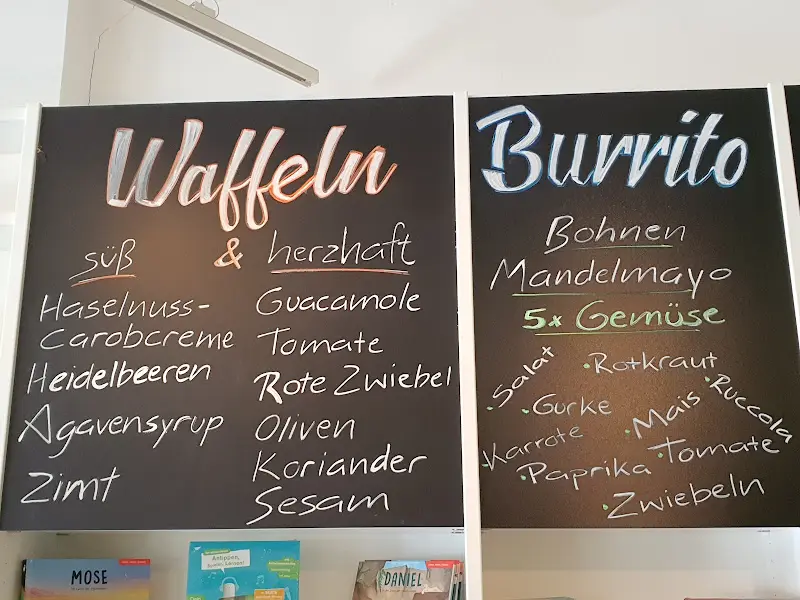 Waffeln
süß & herzhaft
Haselnuss-
Carobcreme
Heidelbeeren
Agavensyrup
Zimt
Guacamole
Tomate
Rote Zwiebel
Oliven
Koriander
Sesam
Burrito
Bohnen
Mandelmayo
5x Gemüse
·Salat
·Rotkraut
·Ruccola
·Gurke
·Mais
·Karrote
·Tomate
·Paprika
·Zwiebeln
MOSE
DANIEL